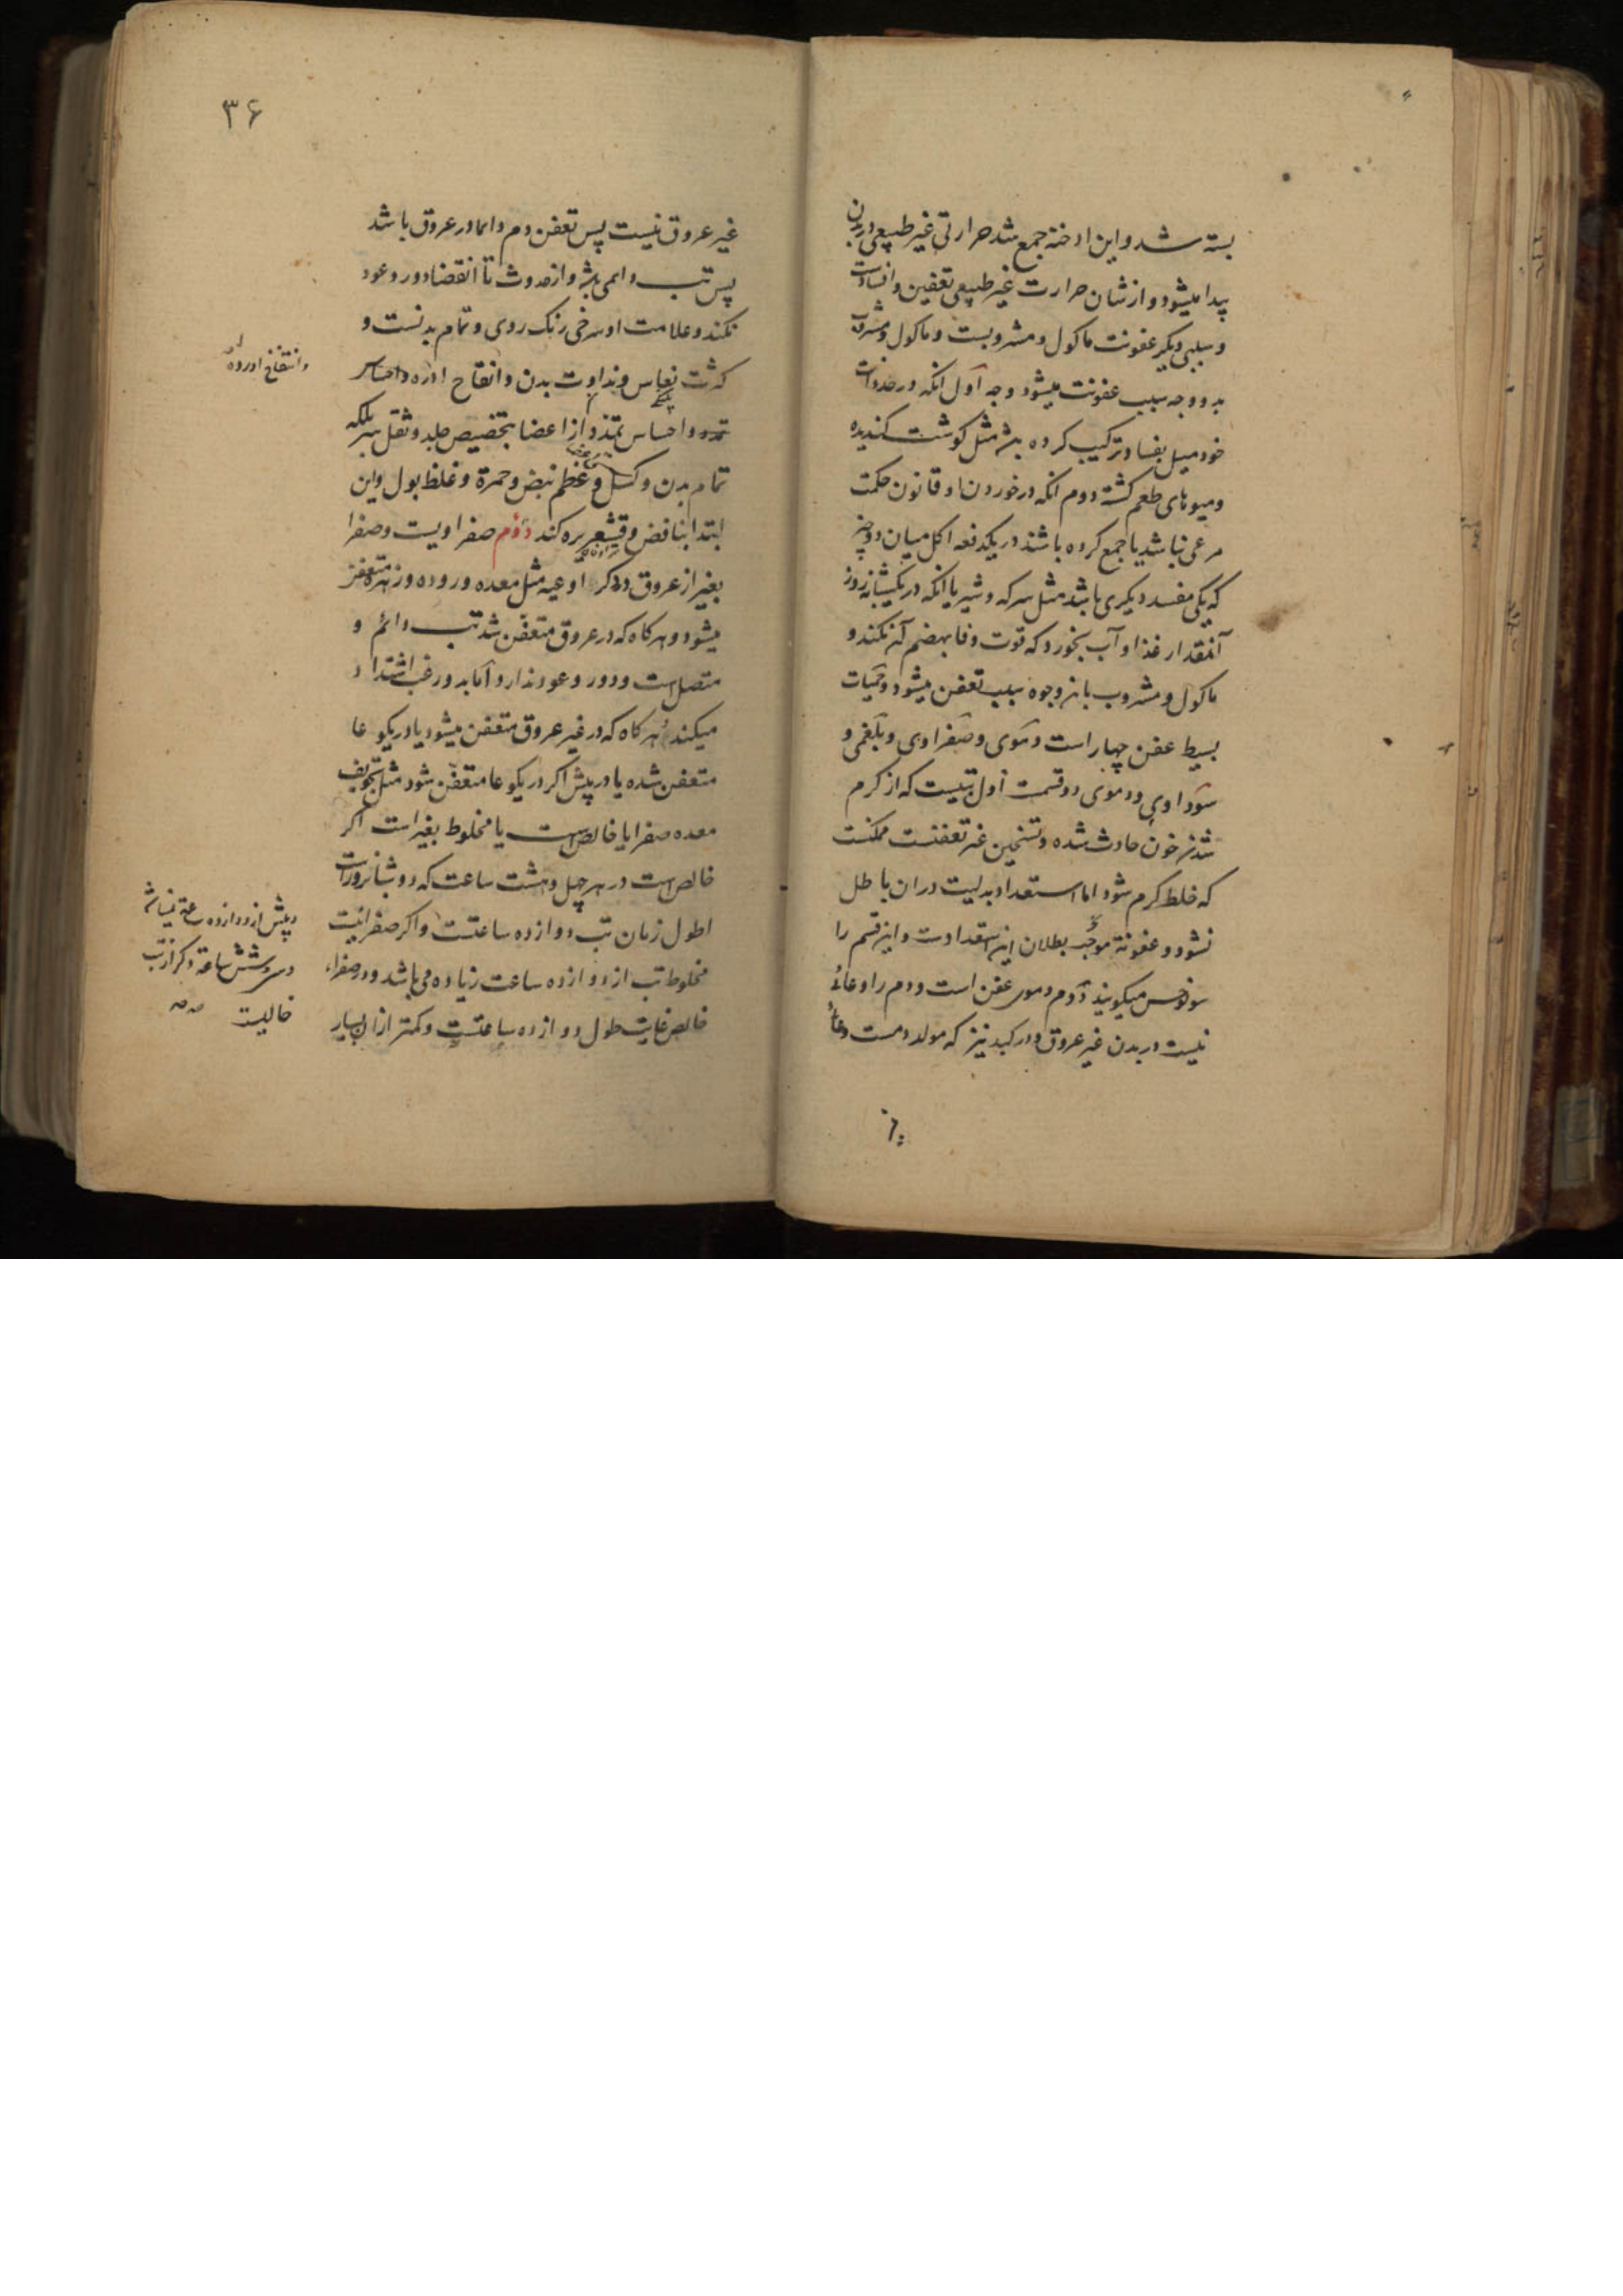 بسته شد و این ادخنه جمع شد حرارتی غیر طبیعی در بدن
پیدا میشود و از شان حرارت غیر طبیعی تعفین و افسادست
و سببی دیکر عفونت ماکول و مشروبست و ماکول و مشروب
بدو وجه سبب عفونت میشود وجه اول انکه در حد ذات
خود میل بفساد ترکیب کرده باشد مثل کوشت کندیده
و میوهای طعم کشته دوم انکه در خوردن او قانون حکمت
مرعی نباشد یا جمع کرده باشند در یکدفعه اکل میان دو چیز
که یکی مفسد دیکری باشد مثل سرکه و شیر یا انکه در یکشبانه روز
آنقدار غذا و آب بخورد که قوت وفا بهضم آن نکند و
ماکول و مشروب باین وجوه سبب تعفن میشود و حمیات
بسیط عفن چهار است دموی و صفراوی و بلغمی و
سوداوی و دموی دو قسمت اول تبیست که از کرم
شدن خون حادث شده و تسخین غیر تعفنست ممکنست
که خلط کرم شود اما استعداد بدلیت دران باطل
نشود و عفونة موجب بطلان این استعدادست و این قسم را
سونوخس میکویند دوم دموی عفن است و دم را وعائی
نیست در بدن غیر عروق و در کبد نیز که مولد دمست وعاء
۳۶
غیر عروق نیست پس تعفن دم دایما در عروق باشد
پس تب دایمی باشد و از حدوث تا انقضا دور و عود
نکند و علامت او سرخی رنک روی و تمام بدنست و
کثرت نعاس و نداوت بدن و انتفاخ اورده و احساس
تمدد و احساس تمدد از اعضا بتخصیص جلد و ثقل سر بلکه
تمام بدن و کسل و عظم نبض و حمرة و غلظ بول و این
ابتدا بنافض و قشعریره کند دوم صفراویست و صفرا
بغیر از عروق در دکر اوعیه مثل معده و روده و زهره متعفن
میشود و هرکاه که در عروق متعفن شد تب دائم و
متصل است و دور و عود ندارد اما بدور غب اشتداد
میکند و هرکاه که در غیر عروق متعفن میشود یا در یکوعا
متعفن شده یا در بیش اکر در یکوعا متعفن شود مثل تجویف
معده صفرا یا خالص است یا مخلوط بغیر است اکر
خالص است در هر چهل و هشت ساعت که دو شبانروزست
اطول زمان تب دوازده ساعتست و اکر صفرا نیست
مخلوط تب از دوازده ساعت زیاده می باشد و در صفراء
خالص غایت طول دوازده ساعتست و کمتر ازان بسیار
و انتفاخ اورده
و بیش از دوازده ساعة نباشد
و سی و شش ساعة دکر از تب
خالیست